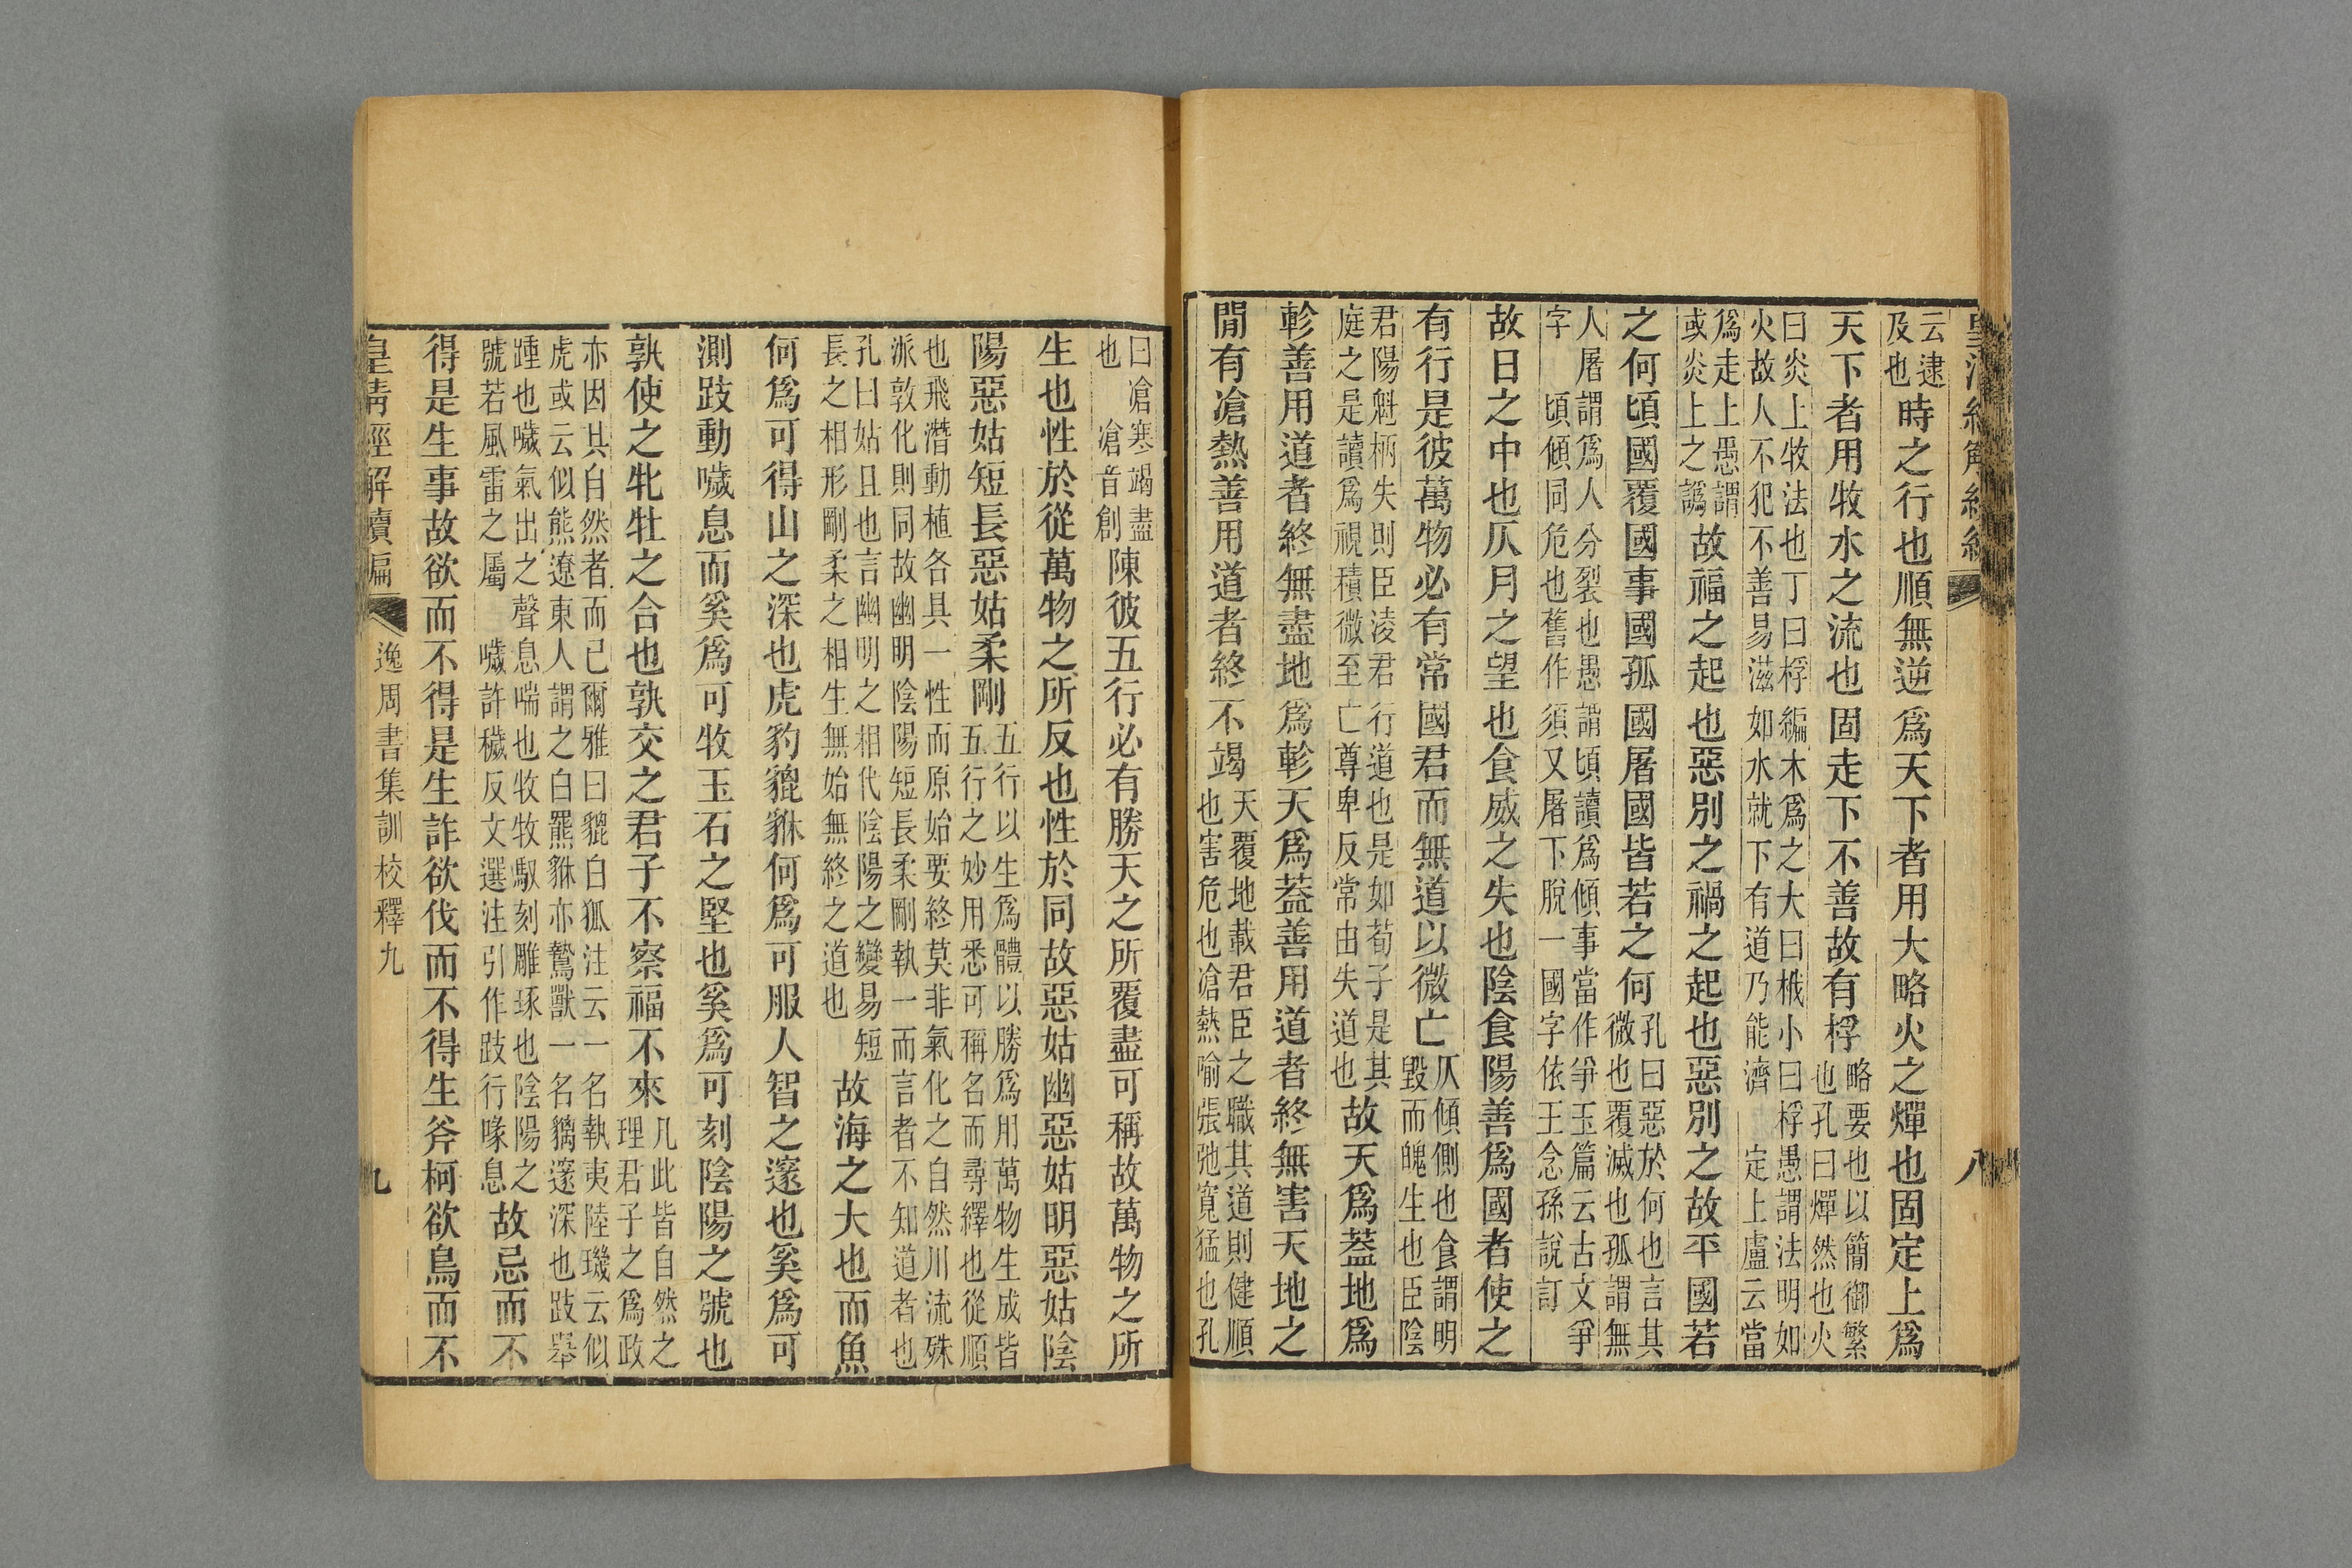 皇清經解續編
八
云逮及也時之行也順無逆爲天下者用大略火之燀也固定上爲
天下者用牧水之流也固走下不善故有桴略要也以簡御繁也孔曰燀然也火
曰炎上牧法也丁曰桴編木爲之大曰栰小曰桴愚謂法明如火故人不犯不善易滋如水就下有道乃能濟 定上盧云當
爲走上愚謂或炎上之譌故福之起也惡別之禍之起也惡別之故平國若
之何頃國覆國事國孤國屠國皆若之何孔曰惡於何也言其微也覆滅也孤謂無
人屠謂爲人分裂也愚謂頃讀爲傾事當作爭玉篇云古文爭字 頃傾同危也舊作須又屠下脫一國字依王念孫說訂
故日之中也仄月之望也食威之失也陰食陽善爲國者使之
有行是彼萬物必有常國君而無道以微亡仄傾側也食謂明毀而魄生也臣陰
君陽魁柄失則臣凌君行道也是如荀子是其庭之是讀爲視積微至亡尊卑反常由失道也故天爲葢地爲
軫善用道者終無盡地爲軫天爲葢善用道者終無害天地之
閒有滄熱善用道者終不竭天覆地載君臣之職其道則健順也害危也滄熱喻張弛寬猛也孔
曰滄寒竭盡也 滄音創陳彼五行必有勝天之所覆盡可稱故萬物之所
生也性於從萬物之所反也性於同故惡姑幽惡姑明惡姑陰
陽惡姑短長惡姑柔剛五行以生爲體以勝爲用萬物生成皆五行之妙用悉可稱名而尋繹也從順
也飛潛動植各具一性而原始要終莫非氣化之自然川流殊派敦化則同故幽明陰陽短長柔剛執一而言者不知道者也
孔曰姑且也言幽明之相代陰陽之變易短長之相形剛柔之相生無始無終之道也故海之大也而魚
何爲可得山之深也虎豹貔貅何爲可服人智之邃也奚爲可
測跂動噦息而奚爲可牧玉石之堅也奚爲可刻陰陽之號也
孰使之牝牡之合也孰交之君子不察福不來凡此皆自然之理君子之爲政
亦因其自然者而已爾雅曰貔白狐注云一名執夷陸璣云似虎或云似熊遼東人謂之白羆貅亦鷙獸一名貙邃深也跂舉
踵也噦氣出之聲息喘也牧牧馭刻雕琢也陰陽之號若風雷之屬 噦許穢反文選注引作跂行喙息故忌而不
得是生事故欲而不得是生詐欲伐而不得生斧柯欲鳥而不
皇清經解續編
逸周書集訓校釋九
九